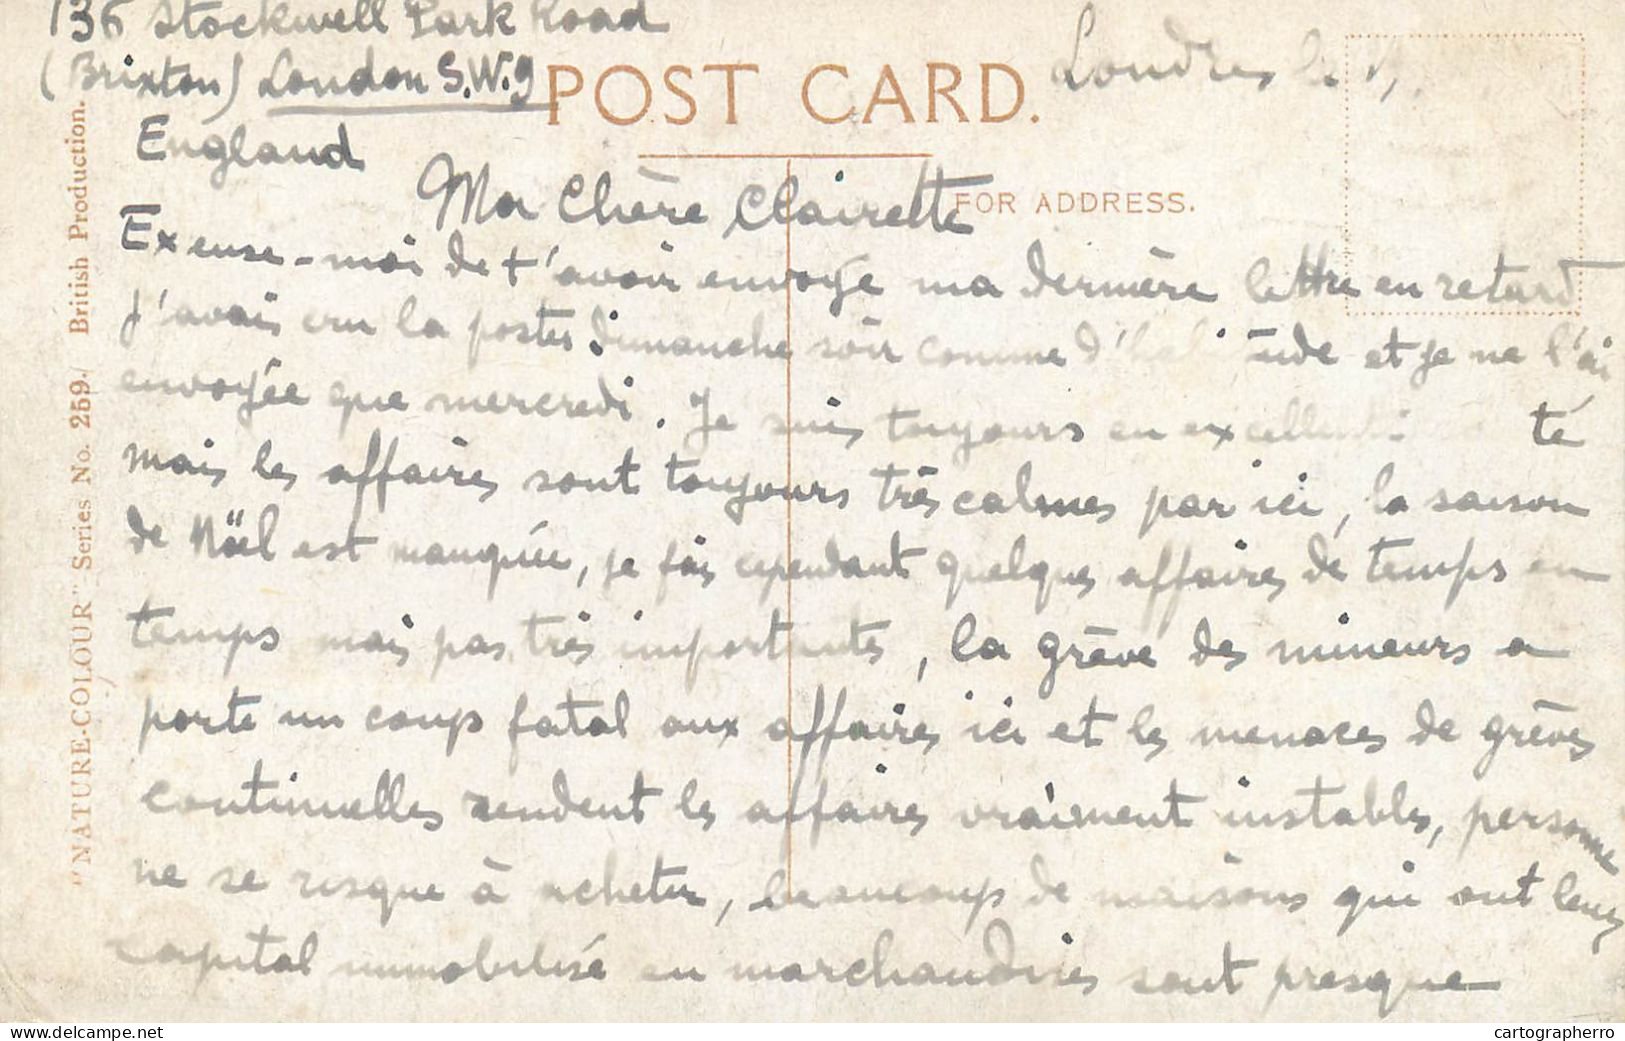 136 Stockwell Park Road
(Brixton) London S.W.9
England
Londres le
POST CARD.
FOR ADDRESS.
"NATURE-COLOUR" Series No. 259. British Production.
Ma Chère Clairette
Excuse-moi de t'avoir envoyé ma dernière lettre en retard
J'avais cru la poster dimanche soir comme d'habitude et je ne l'ai
envoyée que mercredi. Je suis toujours en excellente santé
mais les affaires sont toujours très calmes par ici, la saison
de Noël est manquée, je fais cependant quelques affaires de temps en
temps mais pas très importantes, la grève des mineurs a
porté un coup fatal aux affaires ici et les menaces de grèves
continuelles rendent les affaires vraiment instables, personne
ne se risque à acheter, beaucoup de maisons qui ont leurs
capital immobilisé en marchandises sont presque
www.delcampe.net
cartographerro